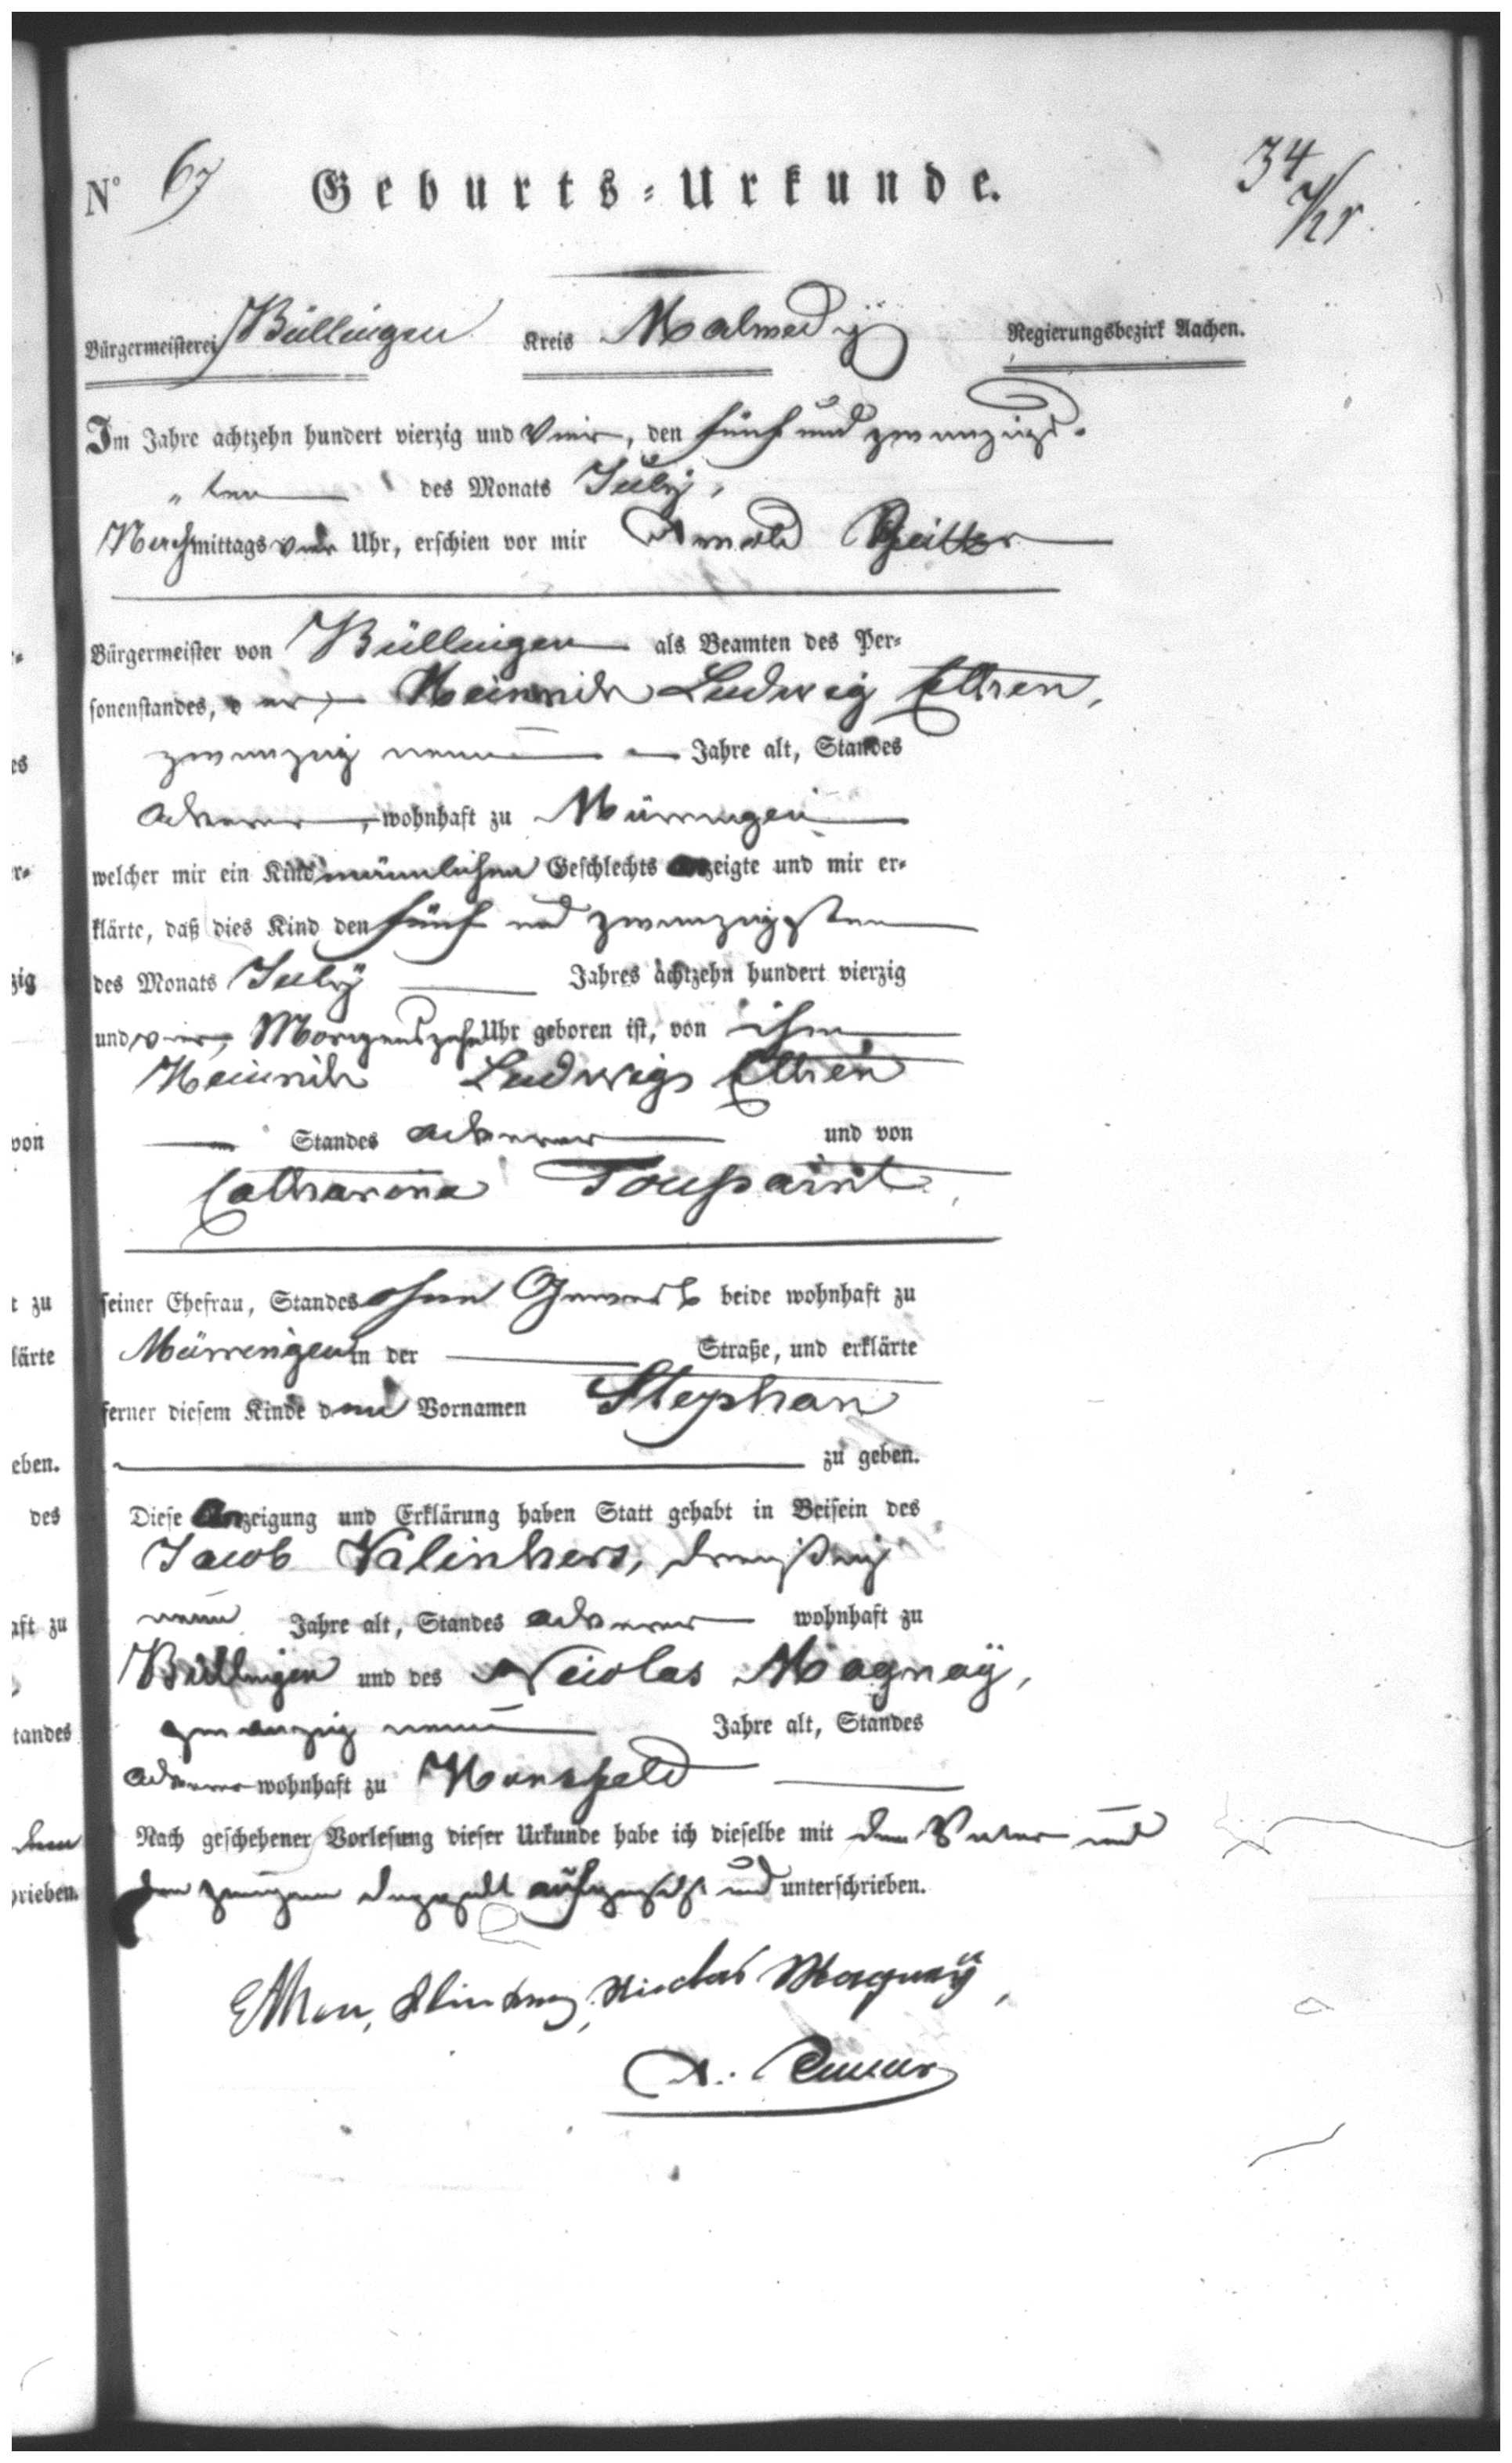 N° 67 Geburts-Urkunde. 34
Bürgermeisterei Büllingen Kreis Malmedÿ Regierungsbezirk Aachen.
Im Jahre achtzehn hundert vierzig und Vier, den fünf und zwanzigs-
"ten des Monats July,
Nachmittags vier Uhr, erschien vor mir Arnold
Bürgermeister von Büllingen als Beamten des Per-
sonenstandes, der, Heinrich Ludwig Ettren,
zwanzig neun Jahre alt, Standes
Ackerer, wohnhaft zu Mürringen
welcher mir ein Kind männlichen Geschlechts anzeigte und mir er-
klärte, daß dies Kind den fünf und zwanzigsten
des Monats July Jahres achtzehn hundert vierzig
und vier, Morgens zehn Uhr geboren ist, von ihm
Heinrich Ludwig Ettren
Standes Ackerer und von
Catharina Toussaint,
seiner Ehefrau, Standes ohne Gewerb beide wohnhaft zu
Mürringen in der Straße, und erklärte
ferner diesem Kinde den Vornamen Stephan
zu geben.
Diese Anzeigung und Erklärung haben Statt gehabt in Beisein des
Jacob Klinkers, dreyßig
neun Jahre alt, Standes Ackerer wohnhaft zu
Büllingen und des Nicolas Magnaÿ,
zwanzig neun Jahre alt, Standes
Ackerer wohnhaft zu Honsfeld
Nach geschehener Vorlesung dieser Urkunde habe ich dieselbe mit dem Vater und
den Zeugen doppelt aufgesetzt und unterschrieben.
Ettren, Klinkers, Nicolas Magnaÿ,
A.